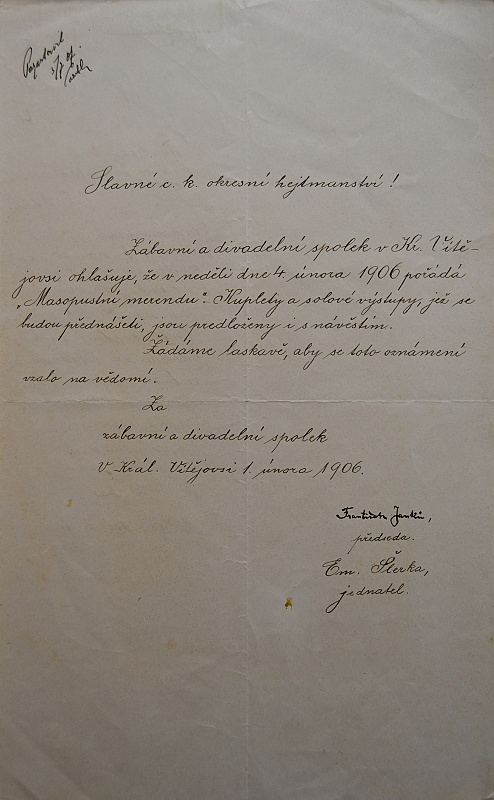 Slavné c. k. okresní hejtmanství!
Zábavní a divadelní spolek v Kr. Vítě-
jovsi ohlašuje, že v neděli dne 4. února 1906 pořádá
„Masopustní merendu“. Kuplety a solové výstupy, jež se
budou přednášeti, jsou předloženy i s návěstím.
Žádáme laskavě, aby se toto oznámení
vzalo na vědomí.
Za
zábavní a divadelní spolek
V Král. Vítějovsi 1. února 1906.
František
předseda.
Em. Šterka,
jednatel.